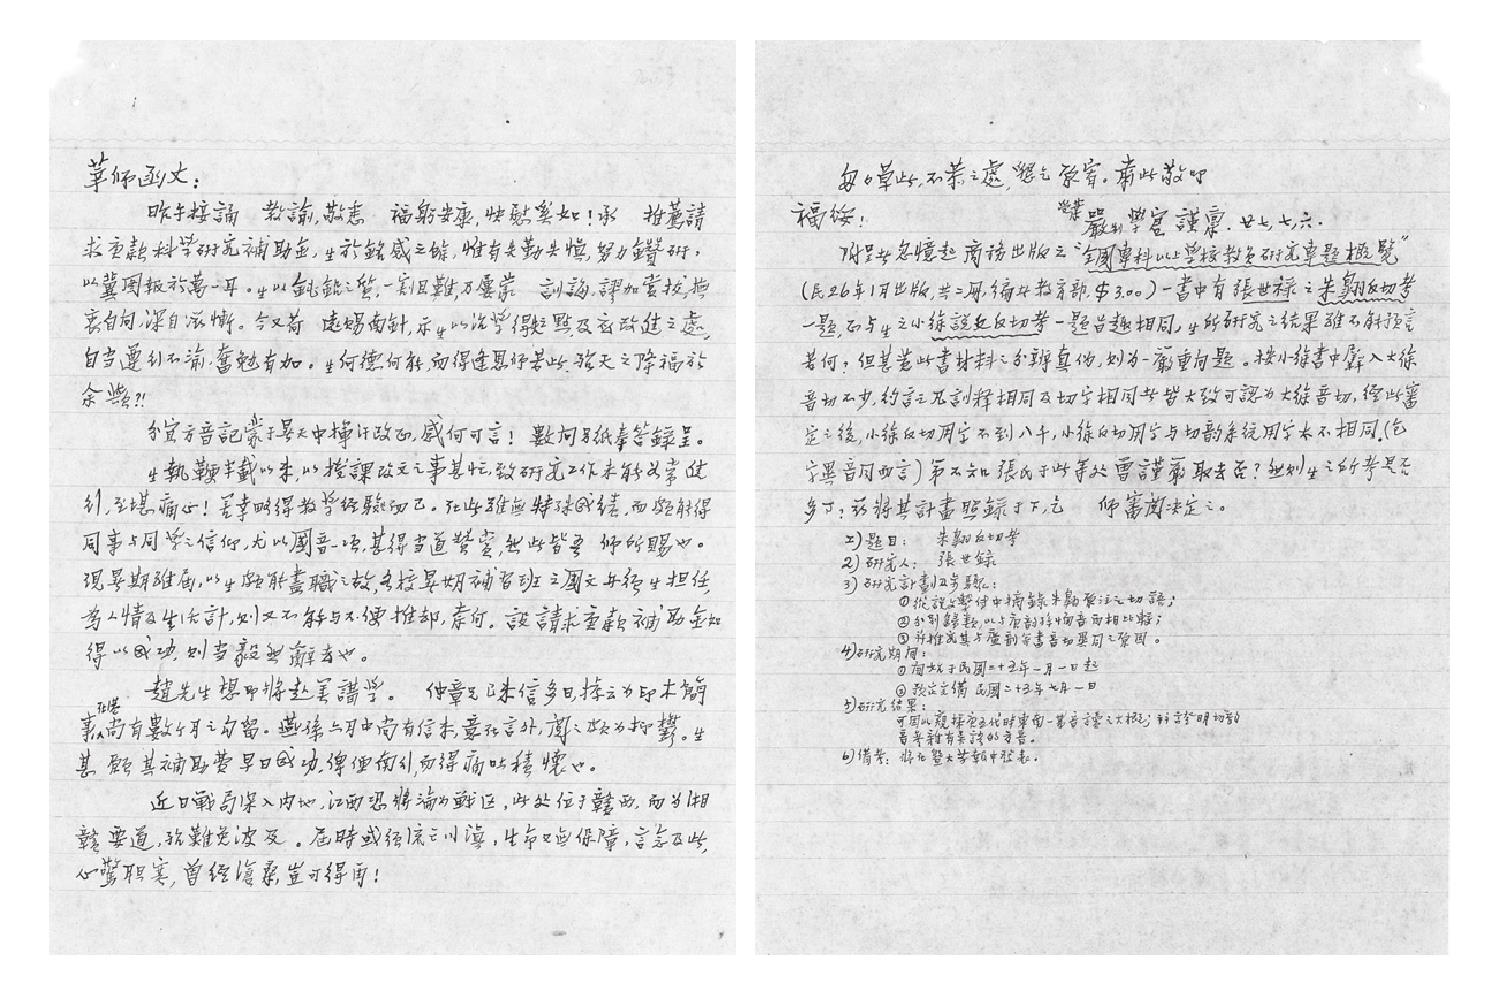 莘师函丈：
昨午接誦 教諭，敬悉 福躬安康，快慰奚如！承 推薦請
求庚款科學研究補助金，生於銘感之餘，惟有矢勤矢慎，努力鑽研，
以冀圖報於萬一耳。生以鈍鉛之質，一割且難，乃屢蒙 訓誨，謬加賞拔，撫
衷自问，深自漸慚。今又荷 遠賜南針，示生以治學得粗點及应改進之處，
自当遵行不渝，奮勉有加。生何德何能，而得逢恩师若此，豈天之降福於
余歟？！
分宜方音記蒙于暑天中揮汗改正，感何可言！數问另纸奉答録呈。
生執鞭半載以来，以授課改文之事甚忙，致研究工作未能如常進
行，至堪痛心！差幸畧得教学经驗而已。在此雖無特殊成绩，而頗能得
同事与同學之信仰，尤以國音一项，甚得当道赞赏，然此皆吾 师所賜也。
現暑期雖届，以生頗能盡職之故，各校暑期補習班之國文每须生担任，
为人情及生活計，则又不能与不便推却，奈何。設請求庚款補助金如
得以成功，则当毅然辭去也。
趙先生想即将赴美講学。 仲章兄已来信多日，據云为印木簡
事，在港尚有數个月之勾留。燕孫六月中尚有信来，意在言外，闻之頗为抑鬱。生
甚願其補助費早日成功，俾便南行，而得痛吐積懷也。
近日戰局深入内地，江西恐将淪为戰区，此处位于贛西，而为湘
贛要道，恐難免波及。屆時或须流亡川滇。生命已無保障，言念及此，
心驚胆寒，曾经滄桑，豈可得再！
匆匆草此，不恭之處，懇乞 原宥。肅此敬叩
福绥！
受業 嚴學宭 謹禀．廿七，七，六．
附呈者忽憶起商務出版之“全國專科以上學校教員研究專題概覽”
(民26年1月出版，共二册，編者教育部，$3.00)一書中有張世禄之朱翱反切考
一题，不与生之小徐說文反切考一题旨趣相同，生所研究之结果雖不能預言
若何，但其著此書材料之分辨真伪，则为一嚴重问题。按小徐書中羼入大徐
音切不少，約言之凡訓释相同及切字相同者皆大致可認为大徐音切，经此審
定之後，小徐反切用字不到八千，小徐反切用字与切韵系统用字本不相同，(包
字異音同而言)第不知張氏于此等处曾謹嚴取去否？然则生之所考是否
多了？茲将其計畫照録于下，乞 师審閲决定之。
1) 题目： 朱翱反切考
2) 研究人： 張世禄
3) 研究計劃及步驟：
①從說文繫传中摘録朱翱所注之切語；
②分别歸類，以与廣韵揆物音而相比較；
③并推究其与廣韵等書音切異同之原因。
4) 研究期间：
①開始于民國二十五年一月一日起
②預定完備民國二十五年七月一日
5) 研究结果：
可因以窺探唐五代時東南一帶音讀之大概；
音等雜有吳語的方音。
6) 備考：將在暨大學報中發表．